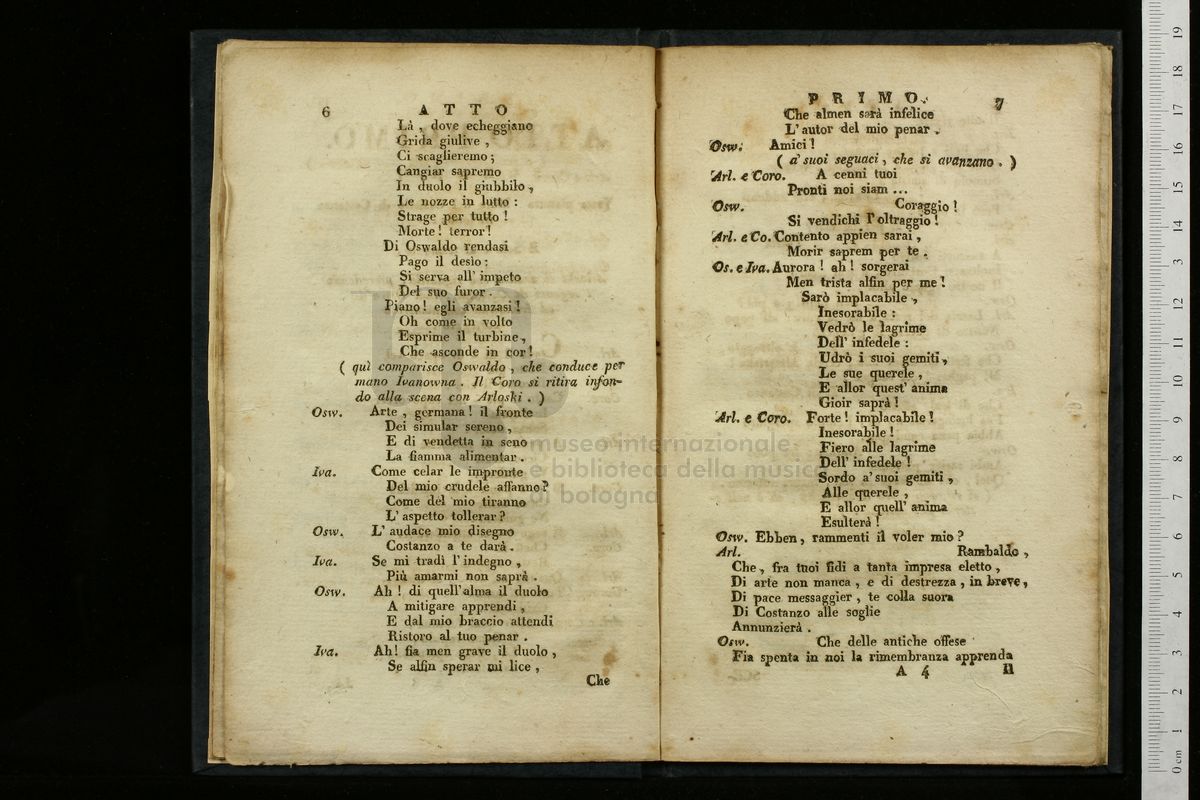 6 ATTO
Là , dove echeggiano
Grida giulive ,
Ci scaglieremo ;
Cangiar sapremo
In duolo il giubbilo ,
Le nozze in lutto :
Strage per tutto !
Morte ! terror !
Di Oswaldo rendasi
Pago il desìo :
Si serva all' impeto
Del suo furor .
Piano ! egli avanzasi !
Oh come in volto
Esprime il turbine ,
Che asconde in cor !
( quì comparisce Oswaldo , che conduce per
mano Ivanowna . Il Coro si ritira infon-
do alla scena con Arloski . )
Osw. Arte , germana ! il fronte
Dei simular sereno ,
E di vendetta in seno
La fiamma alimentar .
Iva. Come celar le impronte
Del mio crudele affanno ?
Come del mio tiranno
L' aspetto tollerar ?
Osw. L' audace mio disegno
Costanzo a te darà .
Iva. Se mi tradì l' indegno ,
Più amarmi non saprà .
Osw. Ah ! di quell' alma il duolo
A mitigare apprendi ,
E dal mio braccio attendi
Ristoro al tuo penar .
Iva. Ah ! fia men grave il duolo ,
Se alfin sperar mi lice ,
Che
PRIMO. 7
Che almen sarà infelice
L' autor del mio penar .
Osw. Amici !
( a' suoi seguaci , che si avanzano . )
Arl. e Coro. A cenni tuoi
Pronti noi siam ...
Osw. Coraggio !
Si vendichi l' oltraggio !
Arl. e Co. Contento appien sarai ,
Morir saprem per te .
Os. e Iva. Aurora ! ah ! sorgerai
Men trista alfin per me !
Sarò implacabile ,
Inesorabile :
Vedrò le lagrime
Dell' infedele :
Udrò i suoi gemiti ,
Le sue querele ,
E allor quest' anima
Gioir saprà !
Arl. e Coro. Forte ! implacabile !
Inesorabile !
Fiero alle lagrime
Dell' infedele !
Sordo a' suoi gemiti ,
Alle querele ,
E allor quell' anima
Esulterà !
Osw. Ebben , rammenti il voler mio ?
Arl. Rambaldo ,
Che , fra tuoi fidi a tanta impresa eletto ,
Di arte non manca , e di destrezza , in breve ,
Di pace messaggier , te colla suora
Di Costanzo alle soglie
Annunzierà .
Osw. Che delle antiche offese
Fia spenta in noi la rimembranza apprenda
A 4 Il
museo internazionale
e biblioteca della musica
di bologna
0 cm 1 2 3 4 5 6 7 8 9 10 11 12 13 14 15 16 17 18 19